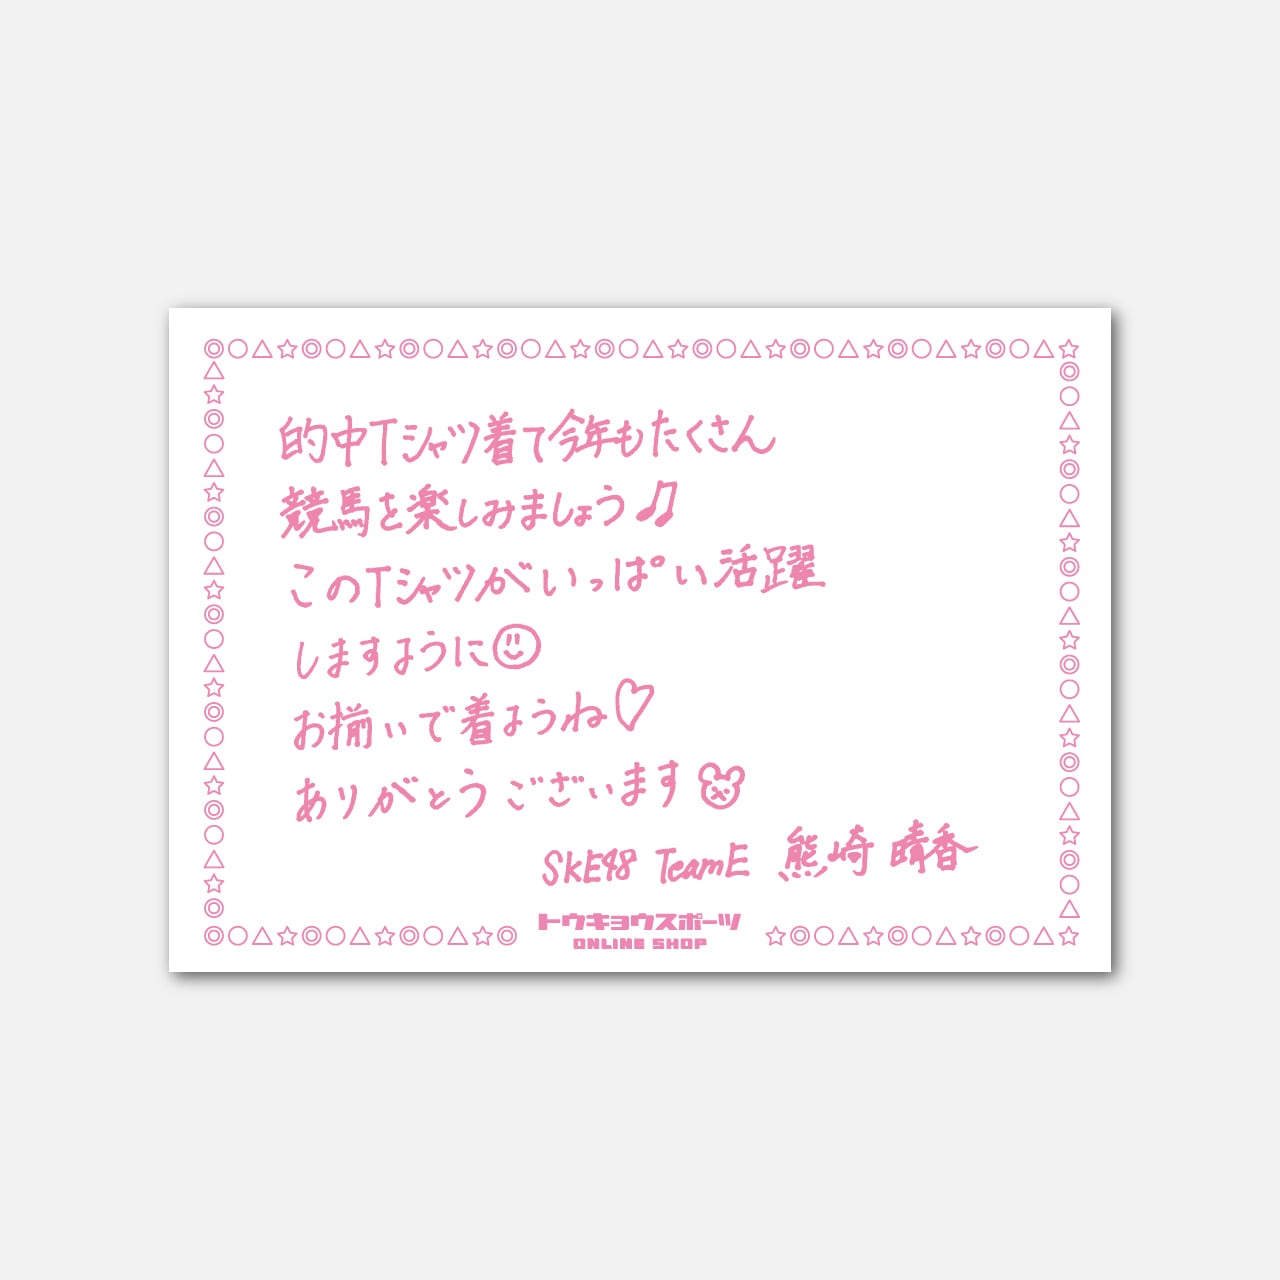 的中Tシャツ着て今年もたくさん
競馬を楽しみましょう♫
このTシャツがいっぱい活躍
しますように
お揃いで着ようね♡
ありがとうございます
SKE48 TeamE 熊崎 晴香
トウキョウスポーツ
ONLINE SHOP